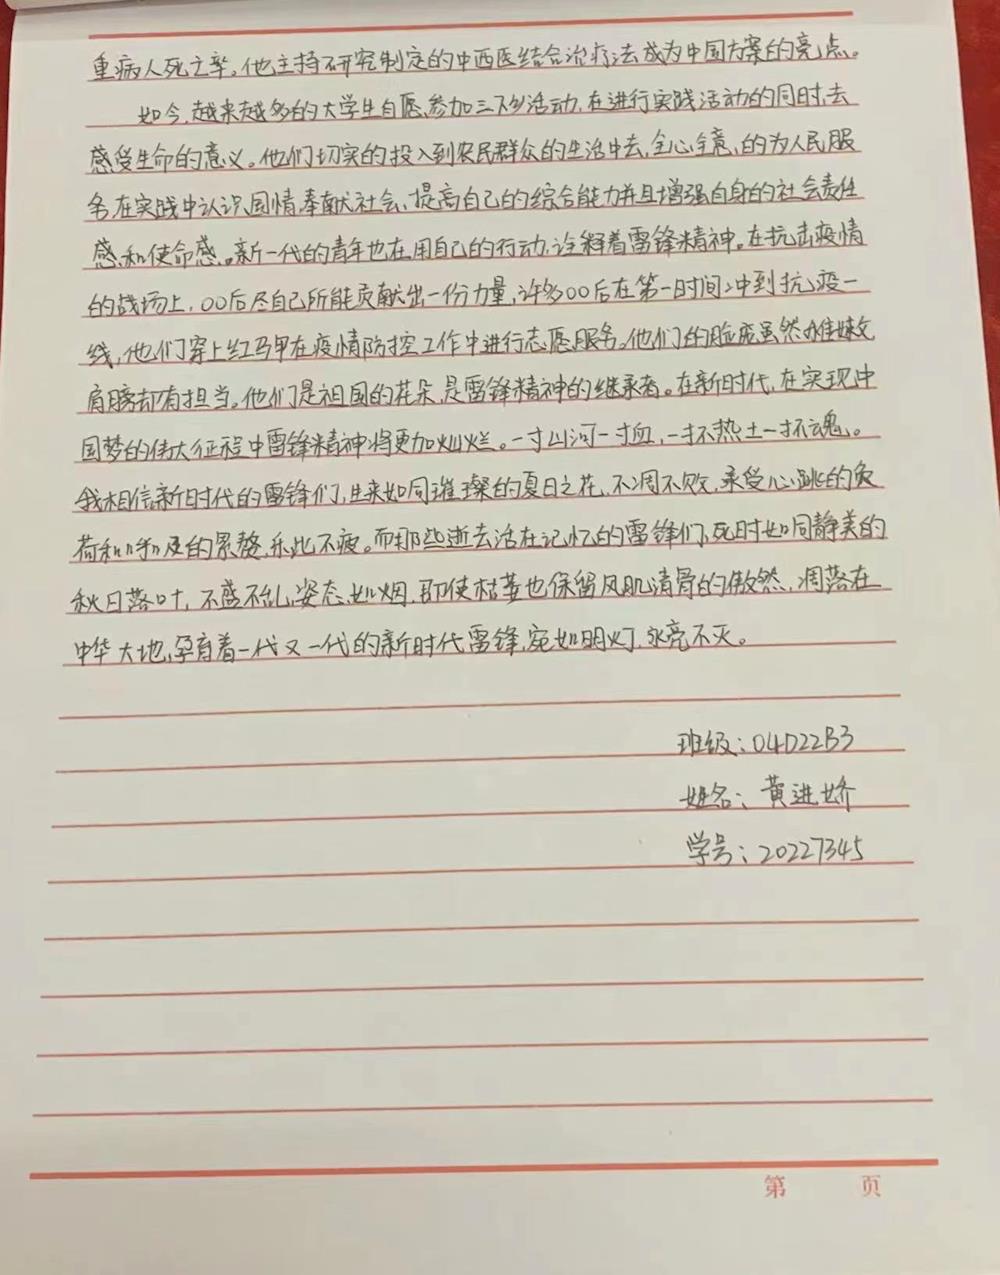 重病人死亡率。他主持研究制定的中西医结合治疗法成为中国方案的亮点。
如今,越来越多的大学生自愿参加三下乡活动,在进行实践活动的同时,去
感受生命的意义。他们切实的投入到农民群众的生活中去,全心全意的为人民服
务,在实践中认识国情,奉献社会、提高自己的综合能力并且增强自身的社会责任
感和使命感。新一代的青年也在用自己的行动,诠释着雷锋精神。在抗击疫情
的战场上,00后尽自己所能贡献出一份力量,许多00后在第一时间冲到抗疫一
线,他们穿上红马甲在疫情防控工作中进行志愿服务。他们的脸庞虽然稚嫩
肩膀却有担当。他们是祖国的花朵,是雷锋精神的继承者。在新时代,在实现中
国梦的伟大征程中雷锋精神将更加灿烂。一寸山河一寸血,一抔热土一抔魂。
我相信新时代的雷锋们,生来如同璀璨的夏日之花,不凋不败,承受心跳的负
荷和呼吸的累赘,乐此不疲。而那些逝去活在记忆的雷锋们,死时如同静美的
秋日落叶,不盛不乱,姿态如烟,即使枯萎也保留风肌清骨的傲然,凋落在
中华大地,孕育着一代又一代的新时代雷锋,宛如明灯,永亮不灭。
班级:04D22B3
姓名:黄进娇
学号:20227345
第 页